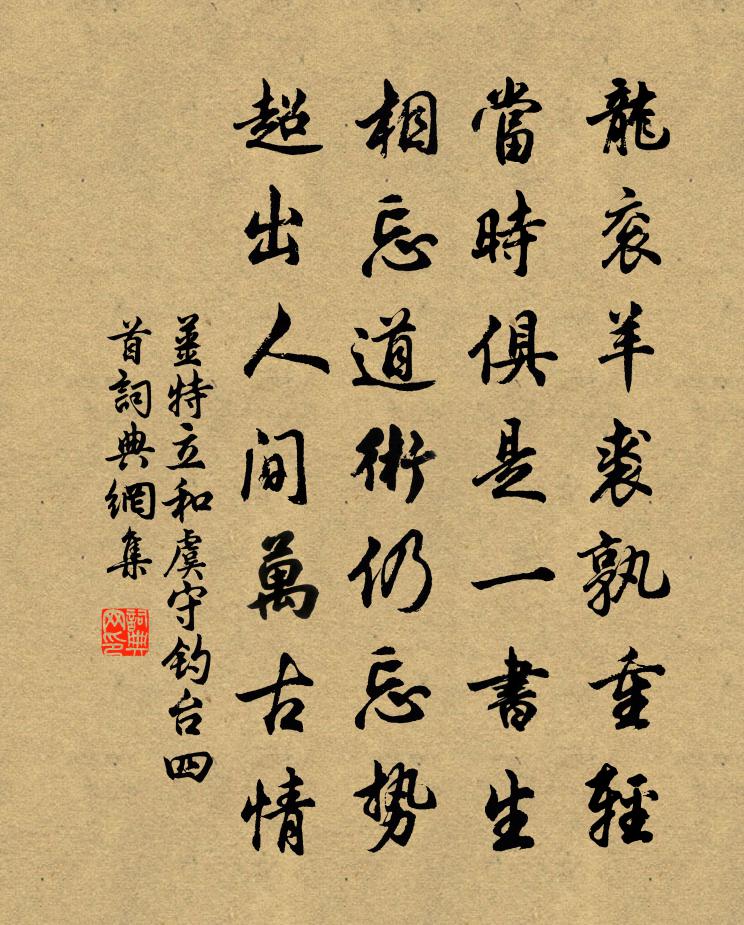 龍衮羊裘孰重輕
當時俱是一書生
相忘道術仍忘勢
超出人間萬古情
薑特立和虞守釣台四
首詞典網集
詞典
网印